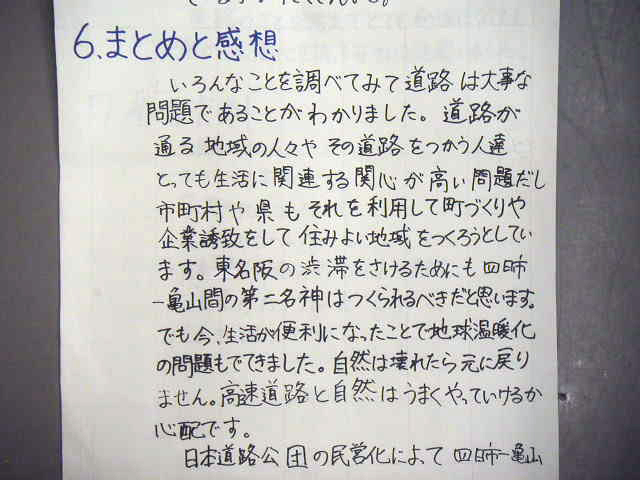 6.まとめと感想
いろんなことを調べてみて道路は大事な
問題であることがわかりました。道路が
通る地域の人々やその道路をつかう人達
とっても生活に関連する関心が高い問題だし
市町村や県もそれを利用して町づくりや
企業誘致をして住みよい地域をつくろうとしてい
ます。東名阪の渋滞をさけるためにも四日市
一亀山間の第二名神はつくられるべきだと思います。
でも今、生活が便利になったことで地球温暖化
の問題もでてきました。自然は壊れたら元に戻り
ません。高速道路と自然はうまくやっていけるか
心配です。
日本道路公団の民営化によって四日市一亀山